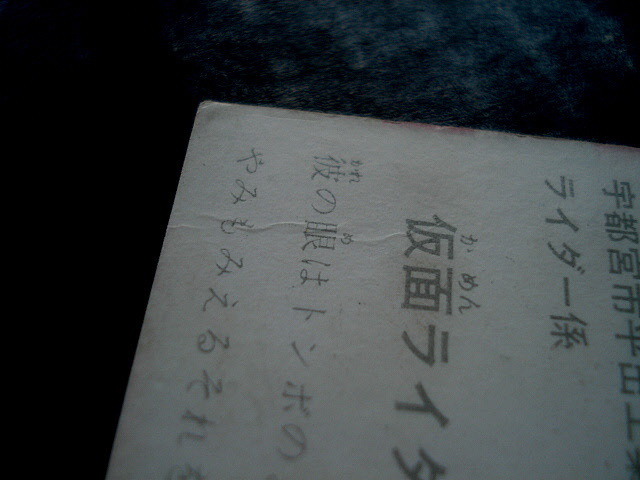 宇都宮市平出工業
ライダー係
仮面ライダ
かめん
彼の眼はトンボの
かれ
め
やみもみえるそれを